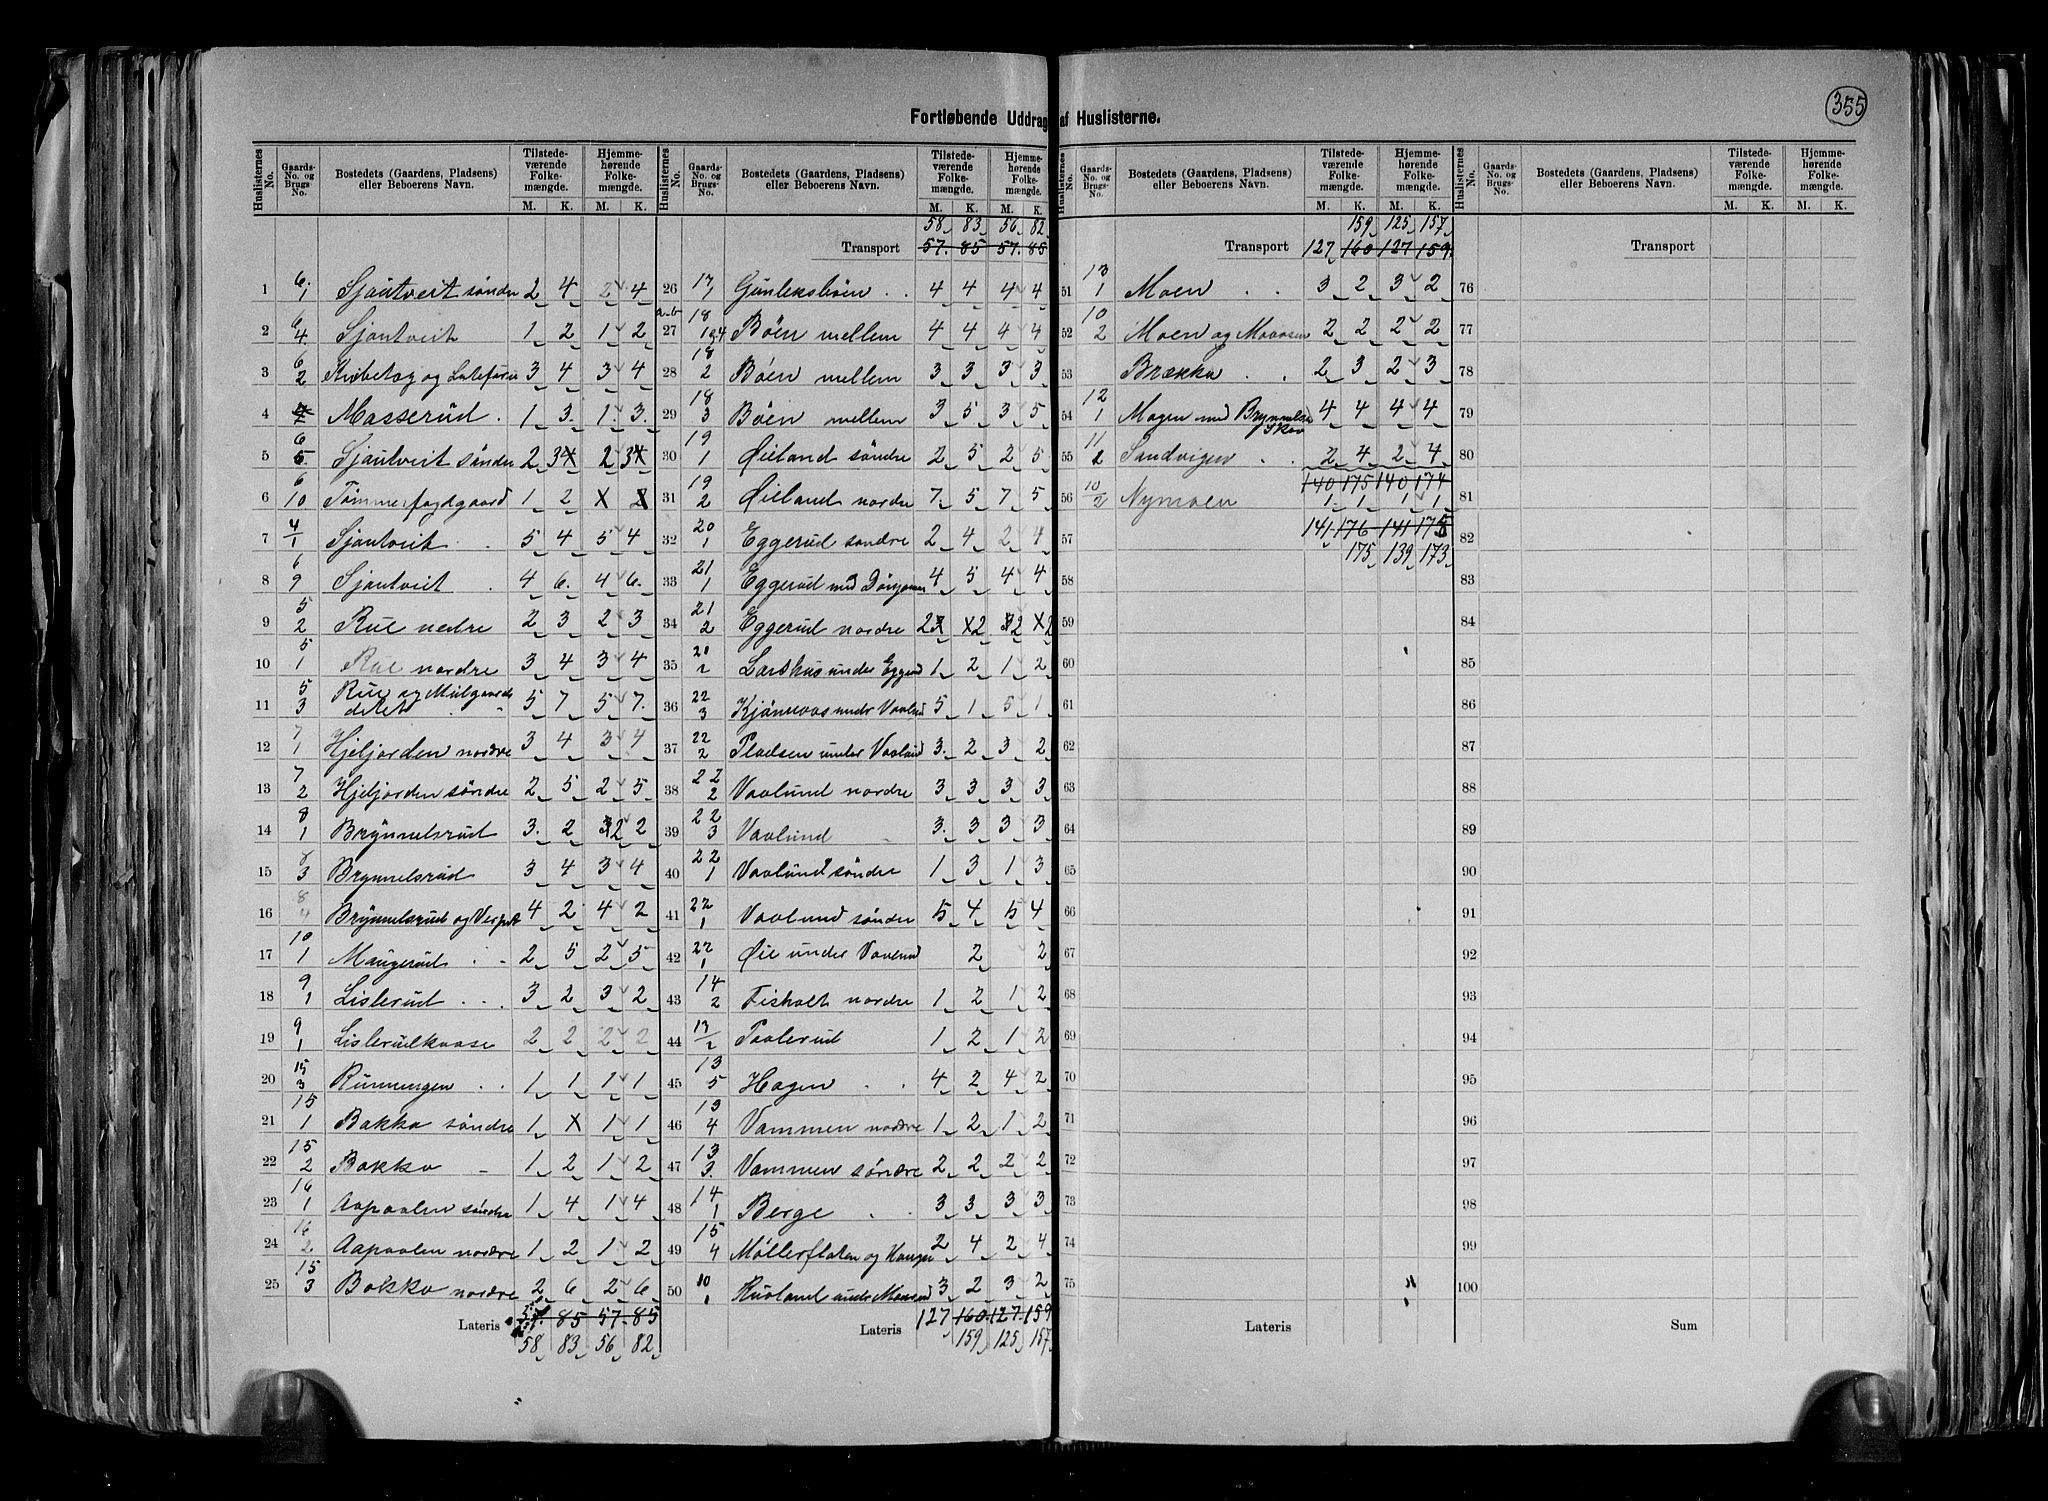 355
Fortløbende Uddrag af Huslisterne.
Huslisternes No. Gaards-No. og Brugs-No. Bostedets (Gaardens, Pladsens) eller Beboerens Navn. Tilstedeværende Folkemængde. Hjemmehørende Folkemængde.
M. K. M. K.
1 6/1 Sjøutveit søndre 2 4 2 4
2 6/4 Sjøutveit 1 2 1 2
3 6/2 3 4 3 4
4 Masserud 1 3 1 3
5 6/5 Sjøutveit søndre 2 3 2 3
6 6/10 Tømmerfogdgaard 1 2 X
7 4/1 Sjøutveit 5 4 5 4
8 6/9 Sjøutveit 4 6 4 6
9 5/2 Rue nedre 2 3 2 3
10 5/1 Rue nordre 3 4 3 4
11 5/3 Rue og 5 7 5 7
12 7/1 Hjeljorden nordre 3 4 3 4
13 7/2 Hjeljorden søndre 2 5 2 5
14 8/1 Brynnelsrud 3 2 2 2
15 8/3 Brynnelsrud 3 4 3 4
16 8/4 Brynnelsrud og 4 2 4 2
17 10/1 Maugerud 2 5 2 5
18 9/1 Lislerud 3 2 3 2
19 9/1 Lislerudkaase 2 2 2 2
20 15/3 Runningen 1 1 1 1
21 15/1 Bakka søndre 1 X 1 1
22 15/2 Bakka 1 2 1 2
23 16/1 Aapaalen søndre 1 4 1 4
24 16/2 Aapaalen nordre 1 2 1 2
25 15/3 Bakka nordre 2 6 2 6
Lateris 57 85 57 85
58 83 56 82
58 83 56 82
Transport 57 85 57 85
26 17/1 Gunleksbøen 4 4 4 4
27 a-b 18/1 Bøen mellem 4 4 4 4
28 18/2 Bøen mellem 3 3 3 3
29 18/3 Bøen mellem 3 5 3 5
30 19/1 Øiland søndre 2 5 2 5
31 19/2 Øiland nordre 7 5 7 5
32 20/1 Eggerud søndre 2 4 2 4
33 21/1 Eggerud med 4 5 4 4
34 21/2 Eggerud nordre 2 2 2 2
35 20/2 Larshus under Eggerud 1 2 1 2
36 22/3 Kjønnaas under Vaalund 5 1 5 1
37 22/2 Pladsen under Vaalund 3 2 3 2
38 22/2 Vaalund nordre 3 3 3 3
39 22/3 Vaalund 3 3 3 3
40 22/1 Vaalund søndre 1 3 1 3
41 22/1 Vaalund søndre 5 4 5 4
42 22/1 Øie under Vaalund 2 2
43 14/2 Fisholt nordre 1 2 1 2
44 Paalerud 1 2 1 2
45 13/5 Hagen 4 2 4 2
46 13/4 Vammen nordre 1 2 1 2
47 13/3 Vammen søndre 2 2 2 2
48 14/1 Berge 3 3 3 3
49 15/4 Møllerflaten og Haugen 2 4 2 4
50 10/1 Rualand under 3 2 3 2
Lateris 127 160 127 159
159 125 157
159 125 157
Transport 127 160 127 159
51 13/1 Moen 3 2 3 2
52 10/2 Moen og 2 2 2 2
53 Brækka 2 3 2 3
54 12/1 Mogen med 4 4 4 4
55 11/2 Sandvigen 2 4 2 4
140 175 140 174
56 10/2 Nymoen 1 1 1 1
57 141 176 141 175
175 139 173
58
59
60
61
62
63
64
65
66
67
68
69
70
71
72
73
74
75
Lateris
Transport
76
77
78
79
80
81
82
83
84
85
86
87
88
89
90
91
92
93
94
95
96
97
98
99
100
Sum